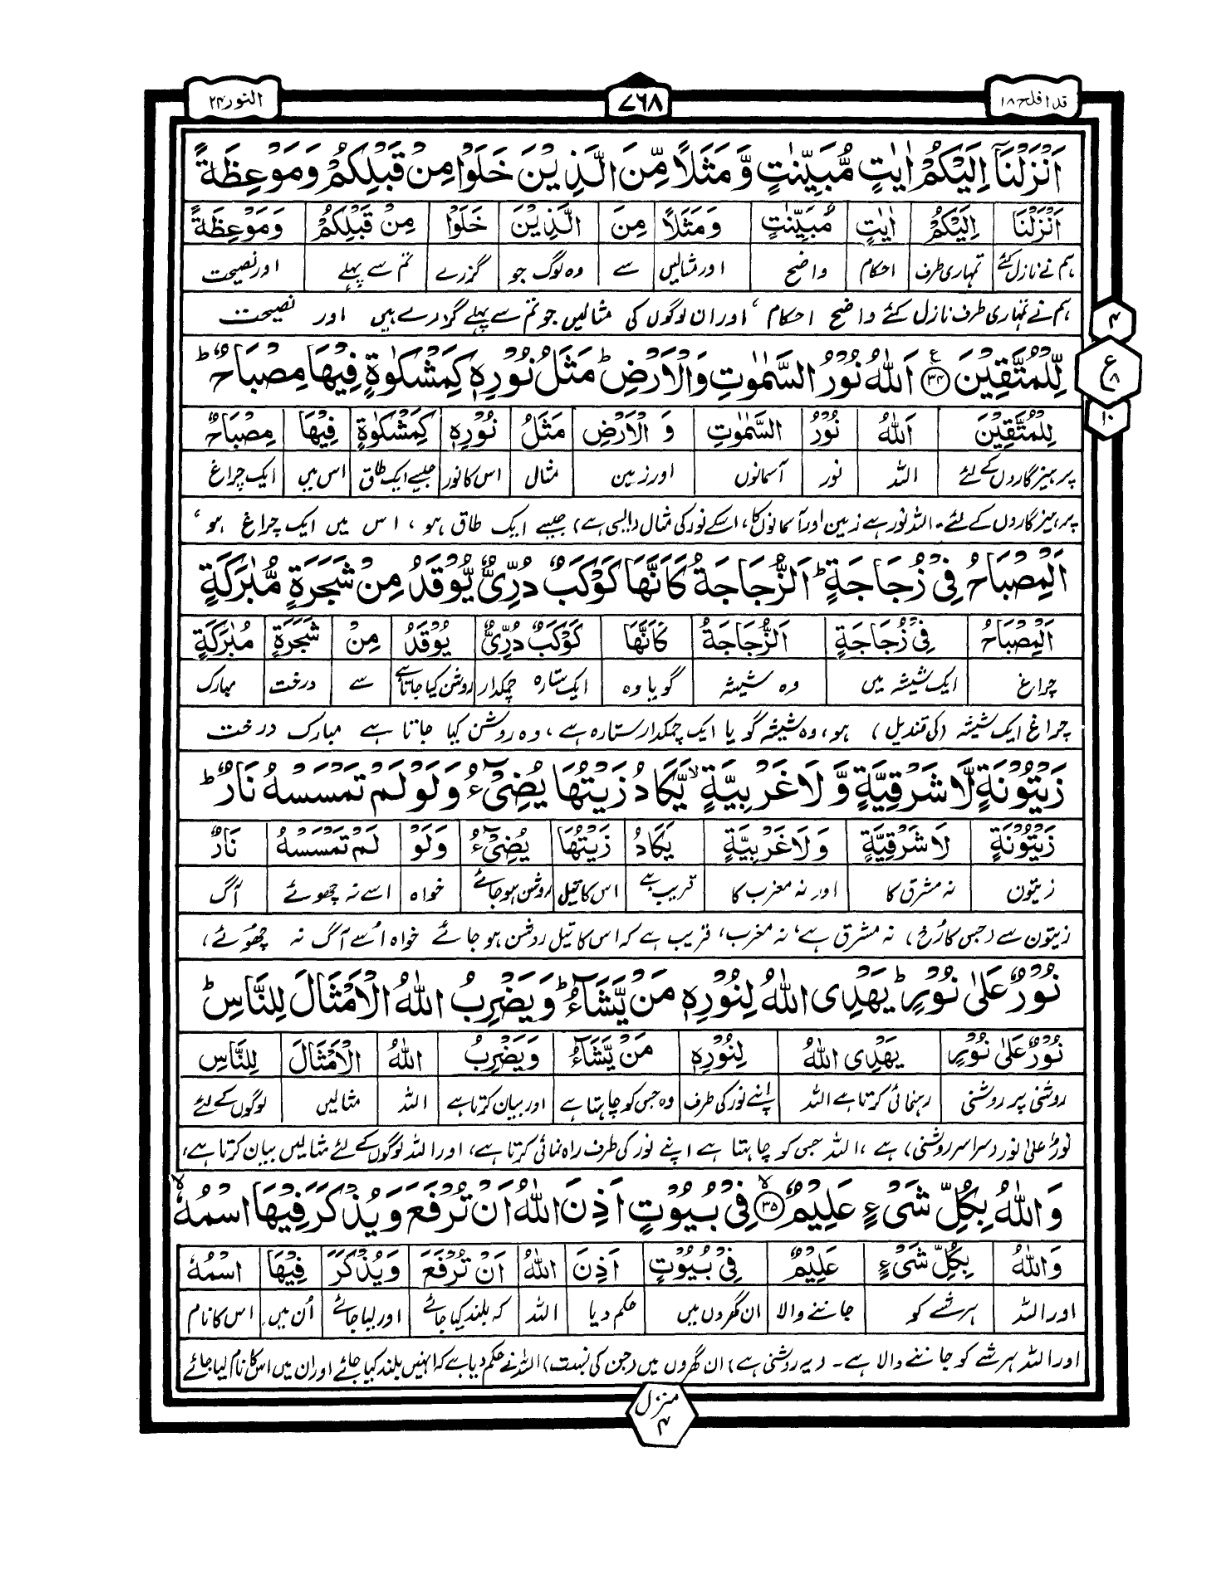 قد افلح ۱۸
۷۶۸
النور ۲۴
اَنْزَلْنَاۤ اِلَیْكُمْ اٰیٰتٍ مُّبَیِّنٰتٍ وَّ مَثَلًا مِّنَ الَّذِیْنَ خَلَوْا مِنْ قَبْلِكُمْ وَ مَوْعِظَةً
اَنْزَلْنَا اِلَیْكُمْ اٰیٰتٍ مُّبَیِّنٰتٍ وَ مَثَلًا مِنَ الَّذِیْنَ خَلَوْا مِنْ قَبْلِكُمْ وَمَوْعِظَةً
ہم نے نازل کئے تمہاری طرف احکام واضح اور مثالیں سے وہ لوگ جو گزرے تم سے پہلے اور نصیحت
ہم نے تمہاری طرف نازل کئے واضح احکام ، اور ان لوگوں کی مثالیں جو تم سے پہلے گزرے ہیں اور نصیحت
۴
ع
۸
۱۰
لِّلْمُتَّقِیْنَ ۳۴ اَللّٰهُ نُوْرُ السَّمٰوٰتِ وَ الْاَرْضِ ؕ مَثَلُ نُوْرِهٖ كَمِشْكٰوةٍ فِیْهَا مِصْبَاحٌ ؕ
لِلْمُتَّقِیْنَ اَللّٰهُ نُوْرُ السَّمٰوٰتِ وَ الْاَرْضِ مَثَلُ نُوْرِهٖ كَمِشْكٰوةٍ فِیْهَا مِصْبَاحٌ
پرہیزگاروں کے لئے اللہ نور آسمانوں اور زمین مثال اس کا نور جیسے ایک طاق اس میں ایک چراغ
پرہیزگاروں کے لئے۔ اللہ نور ہے زمین اور آسمانوں کا، اسکے نور کی مثال (ایسی ہے) جیسے ایک طاق ہو ، اس میں ایک چراغ ہو ،
اَلْمِصْبَاحُ فِیْ زُجَاجَةٍ ؕ اَلزُّجَاجَةُ كَاَنَّهَا كَوْكَبٌ دُرِّیٌّ یُّوْقَدُ مِنْ شَجَرَةٍ مُّبٰرَكَةٍ
اَلْمِصْبَاحُ فِیْ زُجَاجَةٍ اَلزُّجَاجَةُ كَاَنَّهَا كَوْكَبٌ دُرِّیٌّ یُوْقَدُ مِنْ شَجَرَةٍ مُبٰرَكَةٍ
چراغ ایک شیشہ میں وہ شیشہ گویا وہ ایک ستارہ چمکدار روشن کیا جاتا ہے سے درخت مبارک
چراغ ایک شیشہ (کی قندیل) ہو، وہ شیشہ گویا ایک چمکدار ستارہ ہے ، وہ روشن کیا جاتا ہے مبارک درخت
زَیْتُوْنَةٍ لَّا شَرْقِیَّةٍ وَّ لَا غَرْبِیَّةٍ ۙ یَّكَادُ زَیْتُهَا یُضِیْٓءُ وَ لَوْ لَمْ تَمْسَسْهُ نَارٌ ؕ
زَیْتُوْنَةٍ لَا شَرْقِیَّةٍ وَ لَا غَرْبِیَّةٍ یَكَادُ زَیْتُهَا یُضِیْٓءُ وَلَوْ لَمْ تَمْسَسْهُ نَارٌ
زیتون نہ مشرق کا اور نہ مغرب کا قریب ہے اس کا تیل روشن ہو جائے خواہ اسے نہ چھوئے آگ
زیتون سے (جس کا رُخ) نہ مشرق ہے، نہ مغرب، قریب ہے کہ اس کا تیل روشن ہو جائے خواہ اُسے آگ نہ چھُوئے،
نُوْرٌ عَلٰى نُوْرٍ ؕ یَهْدِی اللّٰهُ لِنُوْرِهٖ مَنْ یَّشَآءُ ؕ وَ یَضْرِبُ اللّٰهُ الْاَمْثَالَ لِلنَّاسِ ؕ
نُوْرٌ عَلٰى نُوْرٍ یَهْدِی اللّٰهُ لِنُوْرِهٖ مَنْ یَّشَآءُ وَیَضْرِبُ اللّٰهُ الْاَمْثَالَ لِلنَّاسِ
روشنی پر روشنی رہنمائی کرتا ہے اللہ اپنے نور کی طرف وہ جس کو چاہتا ہے اور بیان کرتا ہے اللہ مثالیں لوگوں کے لئے
نورٌ علیٰ نور (سراسر روشنی) ہے ، اللہ جس کو چاہتا ہے اپنے نور کی طرف راہ نمائی کرتا ہے، اور اللہ لوگوں کے لئے مثالیں بیان کرتا ہے،
وَ اللّٰهُ بِكُلِّ شَیْءٍ عَلِیْمٌ ۙ۳۵ فِیْ بُیُوْتٍ اَذِنَ اللّٰهُ اَنْ تُرْفَعَ وَ یُذْكَرَ فِیْهَا اسْمُهٗ ۙ
وَاللّٰهُ بِكُلِّ شَیْءٍ عَلِیْمٌ فِیْ بُیُوْتٍ اَذِنَ اللّٰهُ اَنْ تُرْفَعَ وَیُذْكَرَ فِیْهَا اسْمُهٗ
اور اللہ ہر شے کو جاننے والا ان گھروں میں حکم دیا اللہ کہ بلند کیا جائے اور لیا جائے اُن میں اس کا نام
اور اللہ ہر شے کو جاننے والا ہے۔ (یہ روشنی ہے) ان گھروں میں (جن کی نسبت) اللہ نے حکم دیا ہے کہ انہیں بلند کیا جائے اور ان میں اسکا نام لیا جائے
منزل
۴